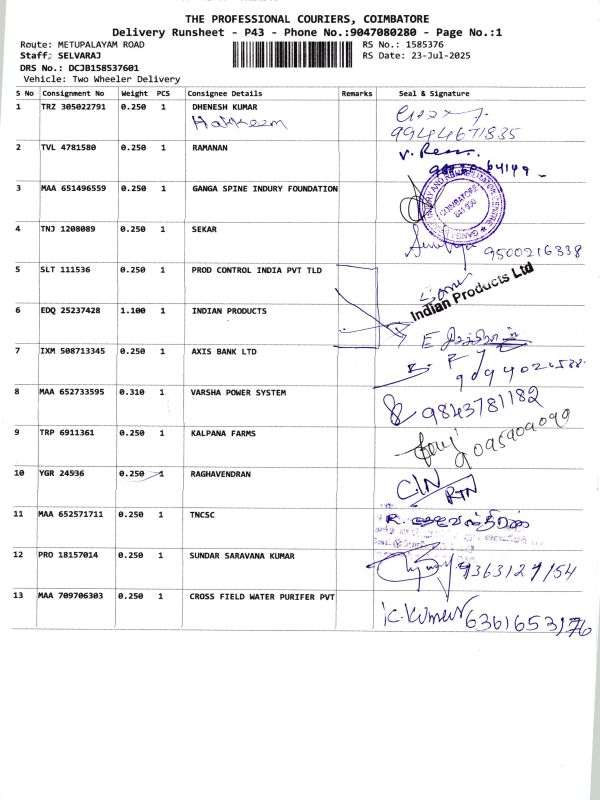 THE PROFESSIONAL COURIERS, COIMBATORE
Delivery Runsheet - P43 - Phone No.:9047080280 - Page No.:1
Route: METUPALAYAM ROAD RS No.: 1585376
Staff: SELVARAJ RS Date: 23-Jul-2025
DRS No.: DCJB158537601
Vehicle: Two Wheeler Delivery
S No Consignment No Weight PCS Consignee Details Remarks Seal & Signature
1 TRZ 305022791 0.250 1 DHENESH KUMAR
9944671835
2 TVL 4781580 0.250 1 RAMANAN
3 MAA 651496559 0.250 1 GANGA SPINE INDURY FOUNDATION
COIMBATORE
4 TNJ 1208089 0.250 1 SEKAR
9500216338
5 SLT 111536 0.250 1 PROD CONTROL INDIA PVT TLD
Indian Products Ltd
6 EDQ 25237428 1.100 1 INDIAN PRODUCTS
7 IXM 508713345 0.250 1 AXIS BANK LTD
8 MAA 652733595 0.310 1 VARSHA POWER SYSTEM
9843781182
9 TRP 6911361 0.250 1 KALPANA FARMS
10 YGR 24536 0.250 1 RAGHAVENDRAN
C/N
RTN
11 MAA 652571711 0.250 1 TNCSC
12 PRO 18157014 0.250 1 SUNDAR SARAVANA KUMAR
13 MAA 709706303 0.250 1 CROSS FIELD WATER PURIFER PVT
K. Kumar